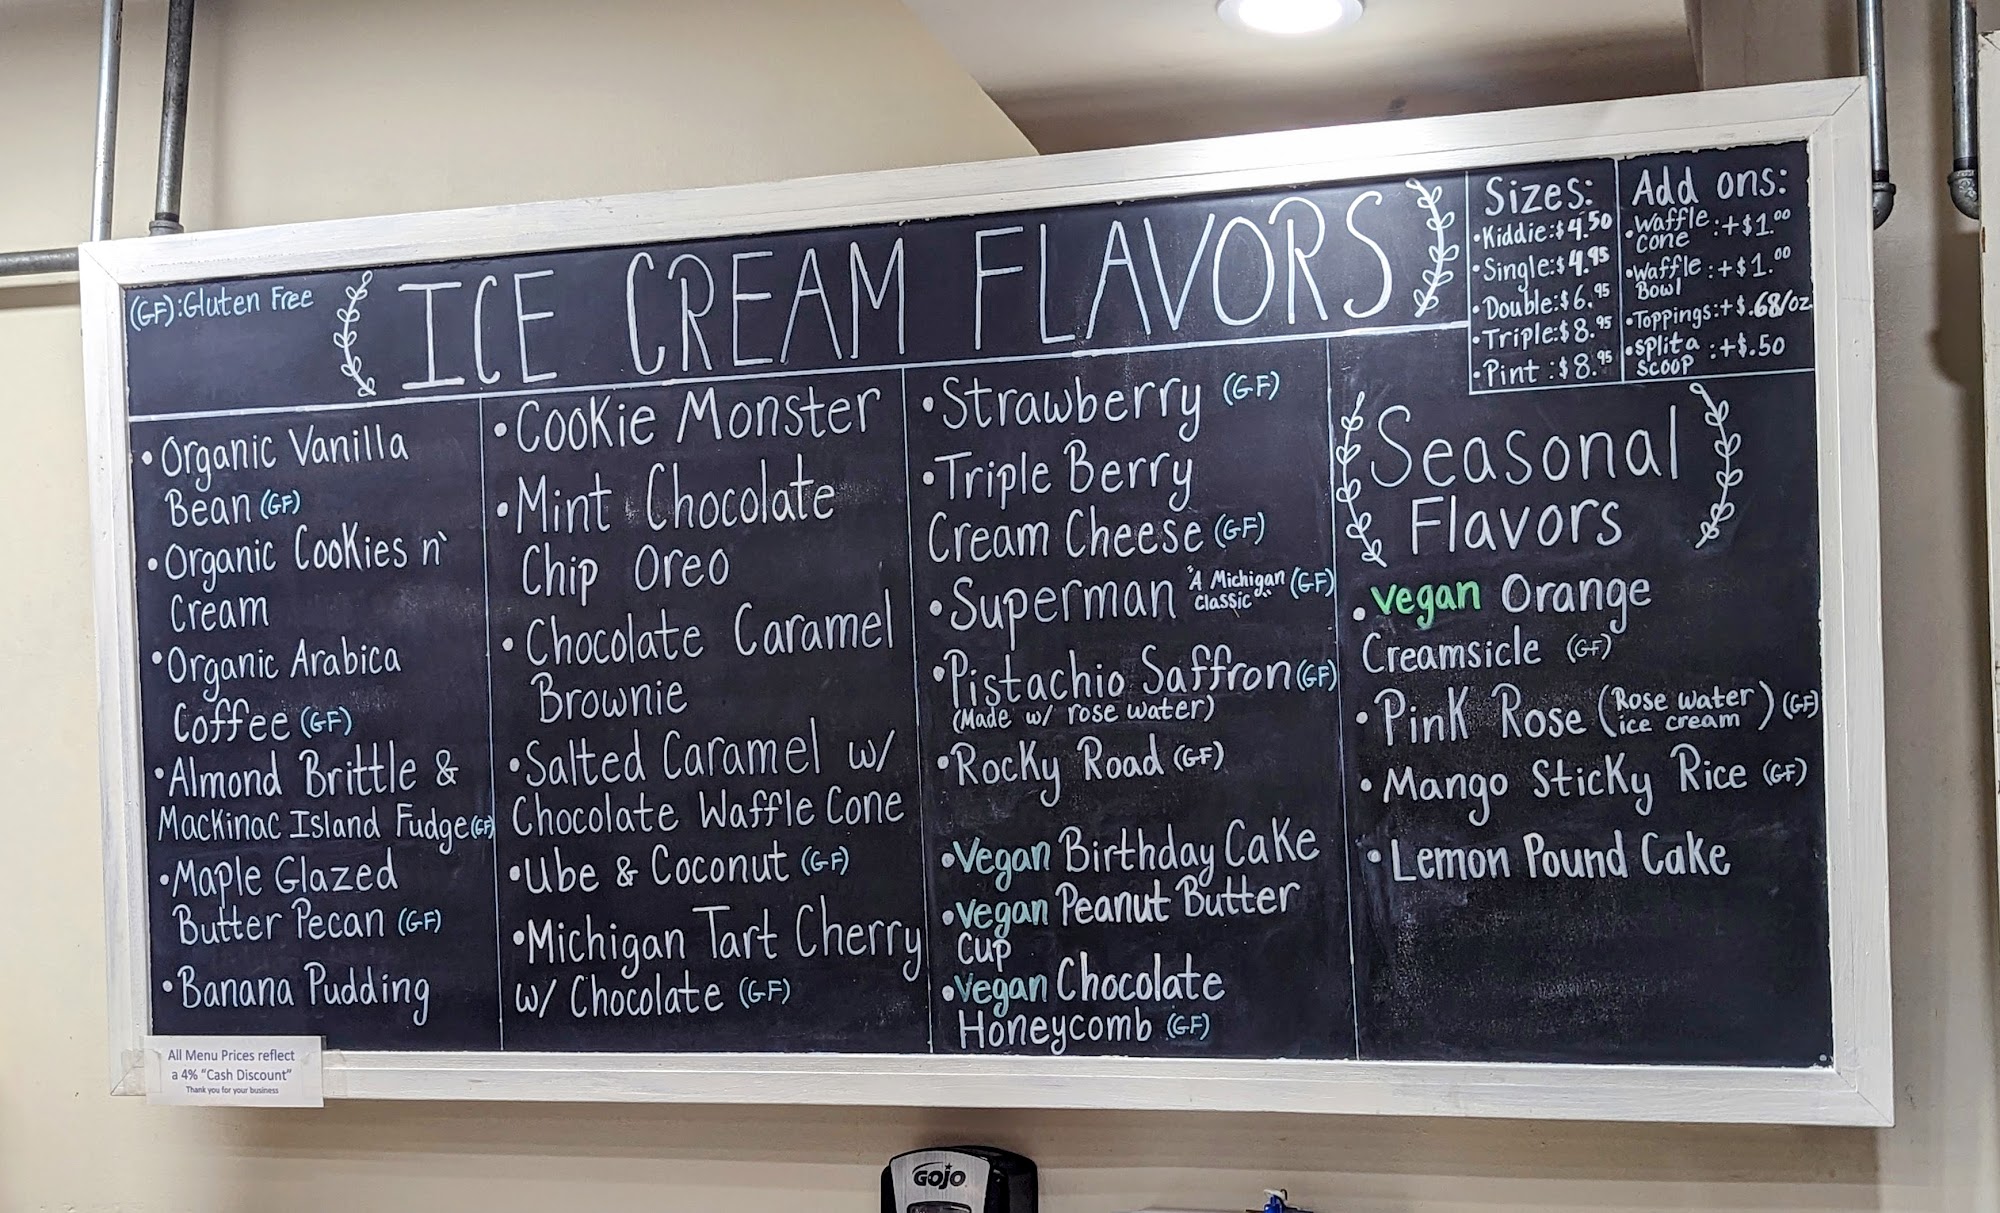 (GF):Gluten Free
ICE CREAM FLAVORS
Sizes:
•Kiddie:$4.50
•Single:$4.95
•Double:$6.95
•Triple:$8.95
•Pint :$8.95
Add ons:
•Waffle :+$1.00
cone
•Waffle :+$1.00
Bowl
•Toppings:+$.68/oz
•split a :+$.50
scoop
•Organic Vanilla
Bean (GF)
•Organic Cookies n'
Cream
•Organic Arabica
Coffee (GF)
•Almond Brittle &
Mackinac Island Fudge(GF)
•Maple Glazed
Butter Pecan (GF)
•Banana Pudding
•Cookie Monster
•Mint Chocolate
Chip Oreo
•Chocolate Caramel
Brownie
•Salted Caramel w/
Chocolate Waffle Cone
•Ube & Coconut (GF)
•Michigan Tart Cherry
w/ Chocolate (GF)
•Strawberry (GF)
•Triple Berry
Cream Cheese (GF)
•Superman "A Michigan (GF)
Classic"
•Pistachio Saffron (GF)
(Made w/ rose water)
•Rocky Road (GF)
•Vegan Birthday Cake
•Vegan Peanut Butter
Cup
•Vegan Chocolate
Honeycomb (GF)
Seasonal
Flavors
•Vegan Orange
Creamsicle (GF)
•Pink Rose (Rose water
ice cream) (GF)
•Mango Sticky Rice (GF)
•Lemon Pound Cake
All Menu Prices reflect
a 4% "Cash Discount"
Thank you for your business
GOJO